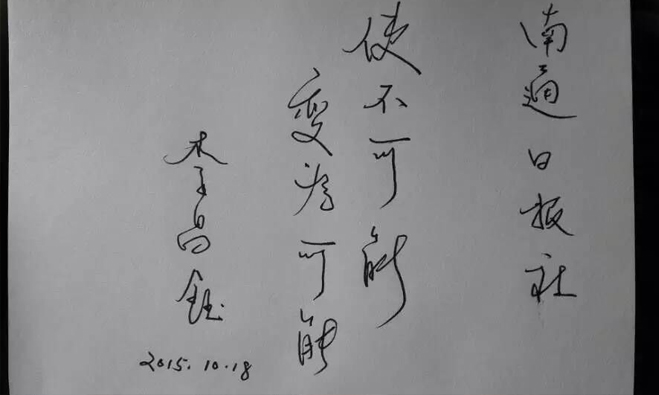 南通日报社
使不可能
变为可能
李昌钰
2015.10.18